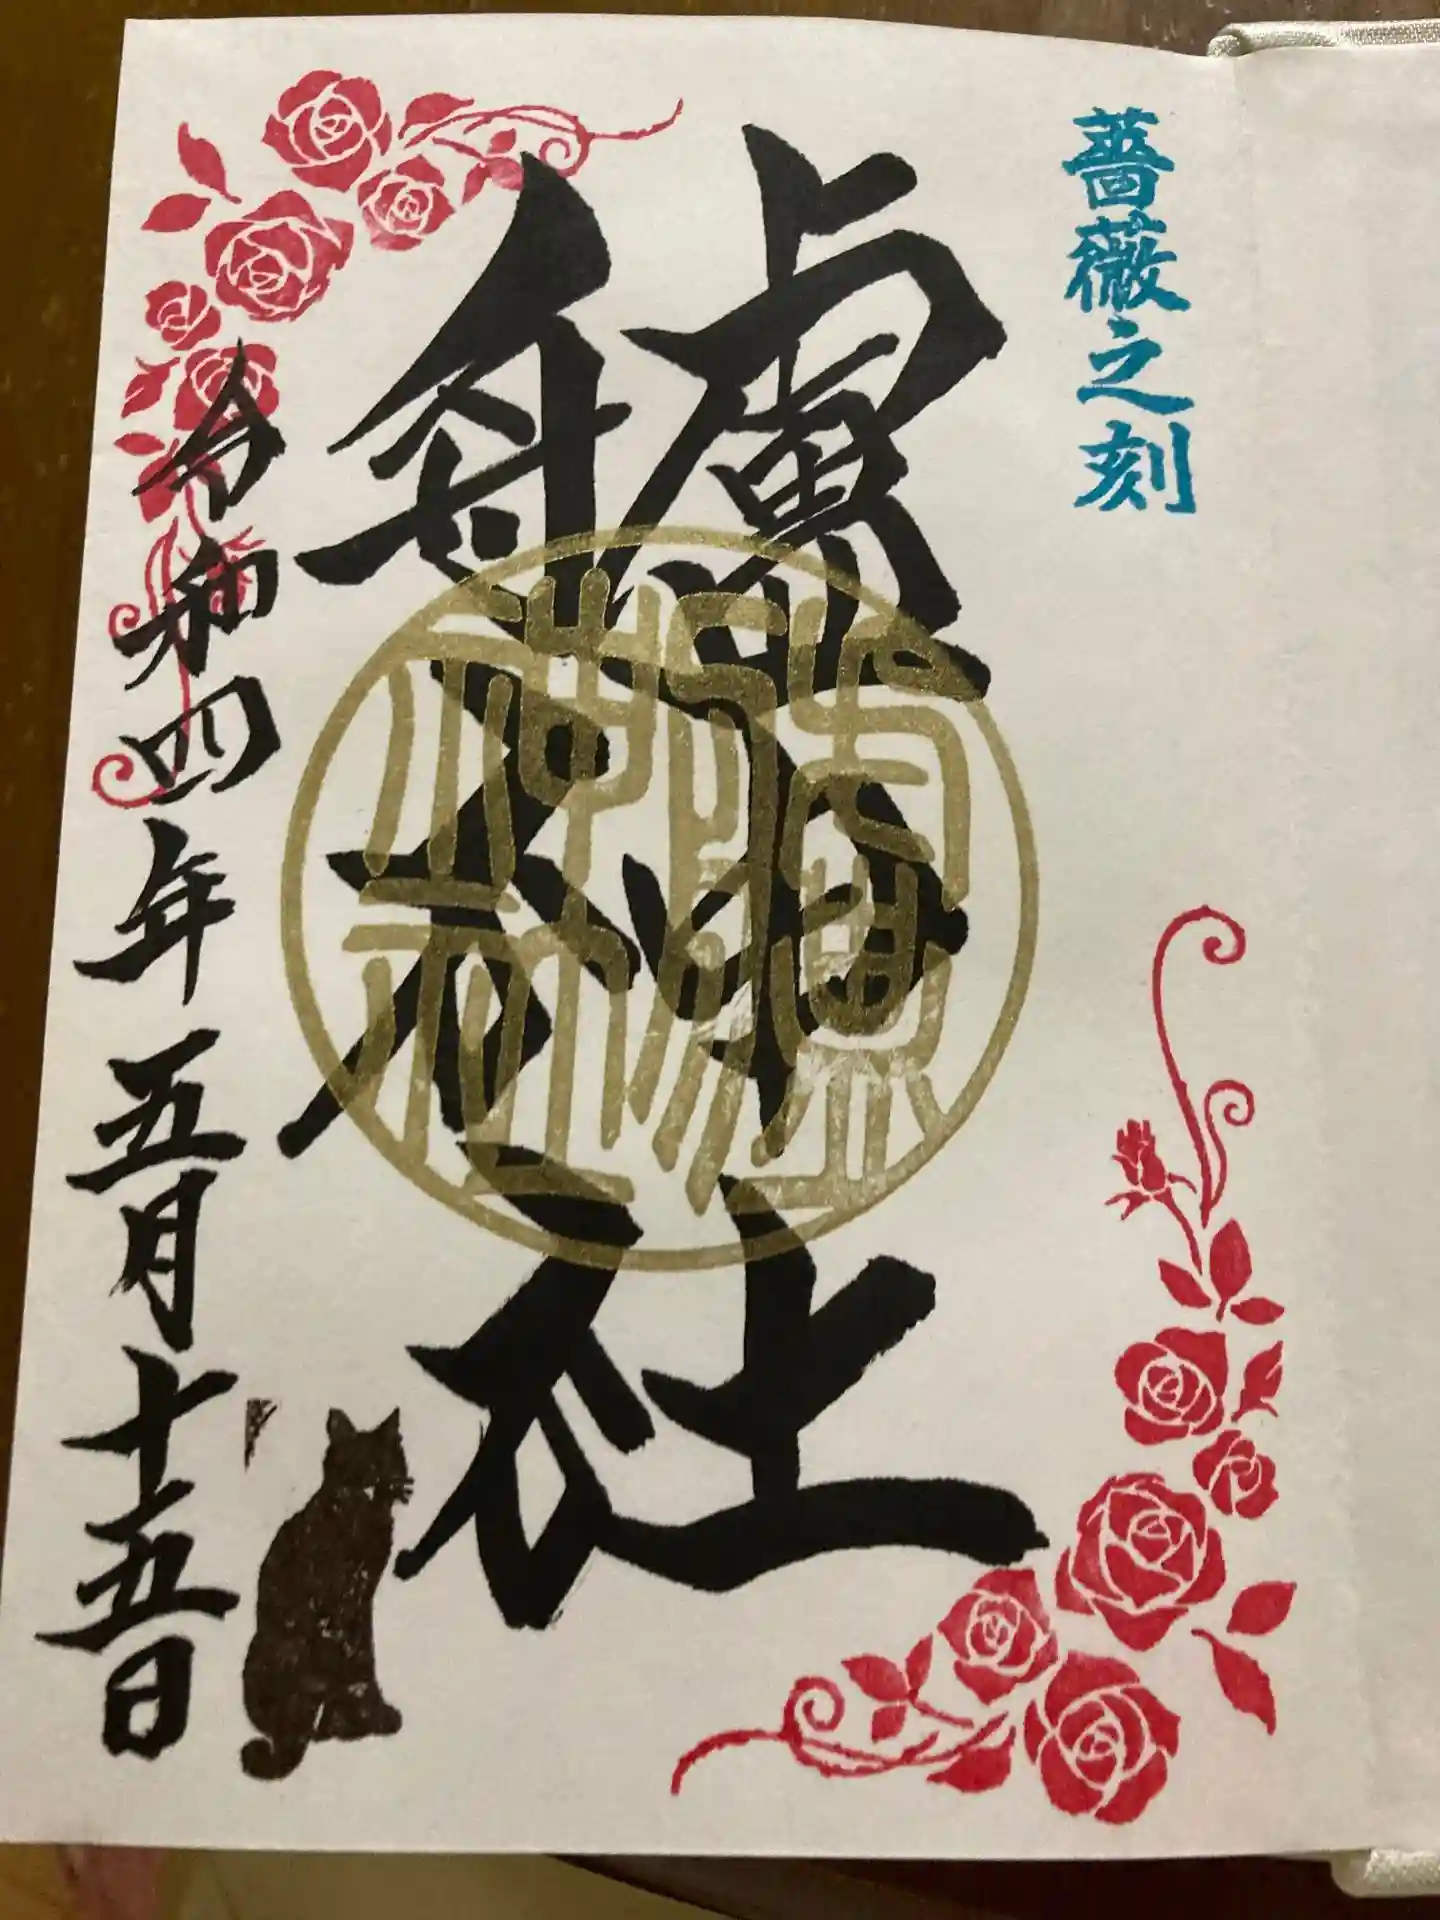 薔薇之刻
艫神社
令和四年五月十五日